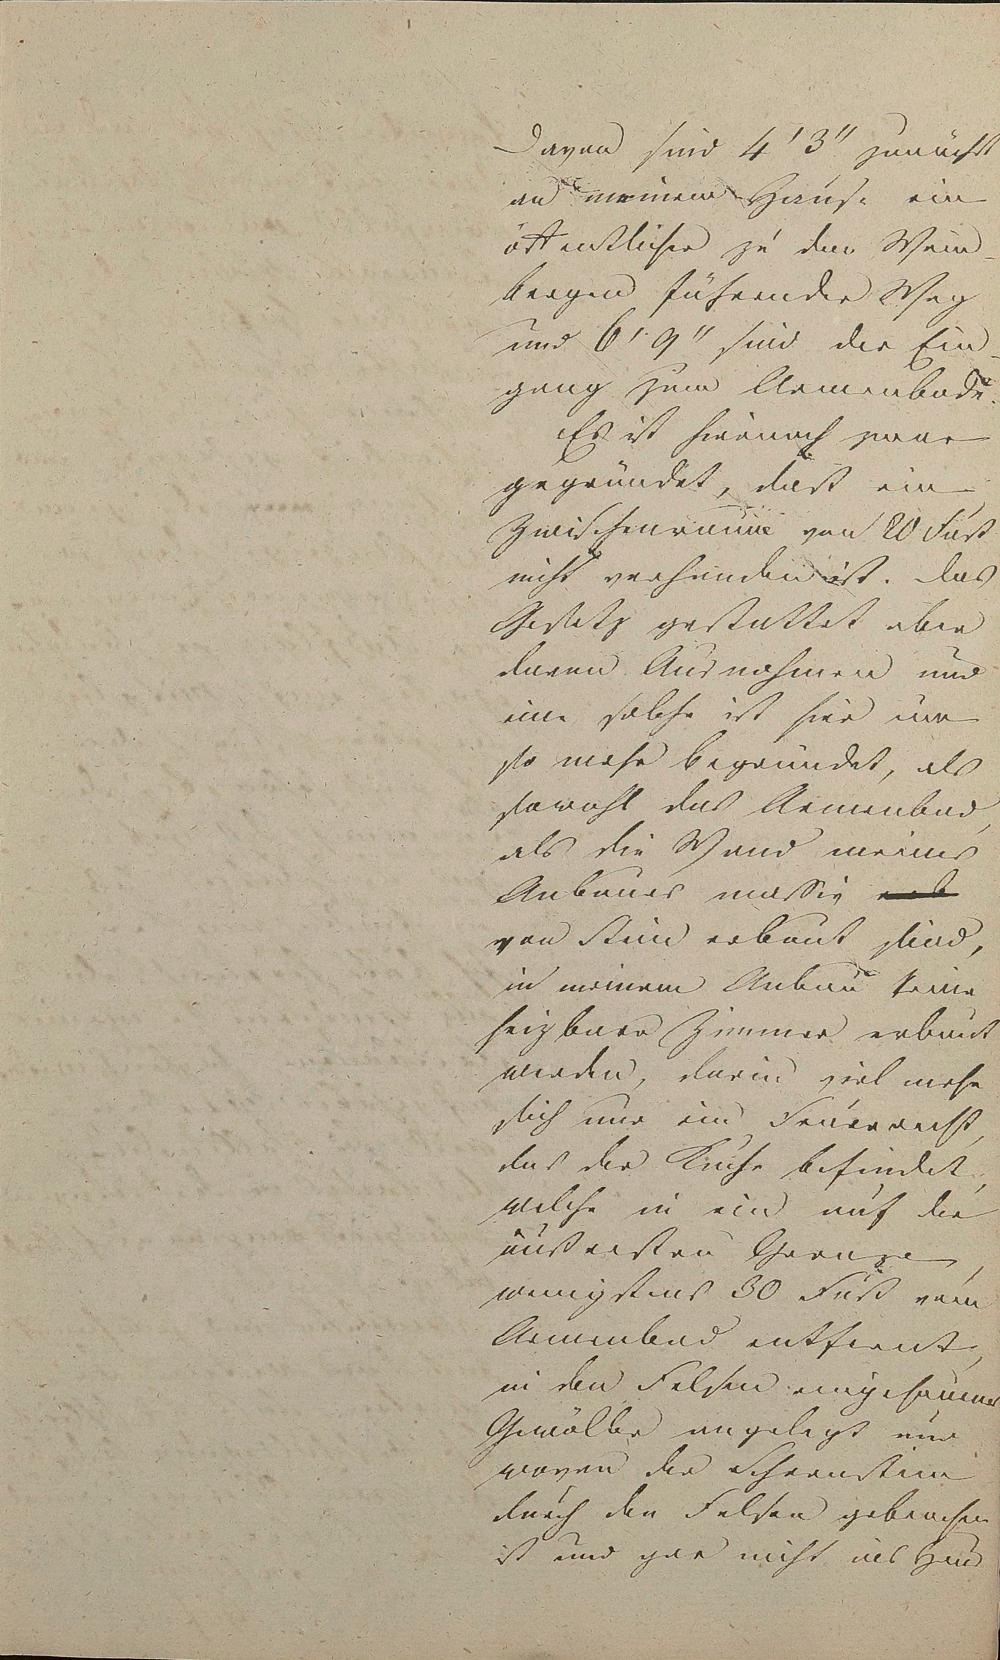 Davon sind 4' 3" zunächst
an meinem Hause ein
öffentlicher zu den Wein-
bergen führender Weg
und 6' 9" sind der Ein-
gang zum Armenbade.
Es ist hiernach zwar
gegründet, daß ein
Zwischenraum von 20 Fuß
nicht vorhanden ist. Das
Gesetz gestattet aber
davon Ausnahmen und
eine solche ist hier um
so mehr begründet, als
sowohl das Armenbad,
als die Wand meines
Anbaues massiv
von Stein erbaut sind,
in meinem Anbau keine
heizbare Zimmer erbaut
werden, darin viel mehr
sich nur ein Feuerrecht,
das der Küche befindet,
welche in ein auf die
äußersten Grenze,
wenigstens 30 Fuß vom
Armenbad entfernt,
in den Felsen eingehauenes
Gewölbe angelegt und
wovon der Schornstein
durch den Felsen gebrochen
ist und gar nicht ins Haus